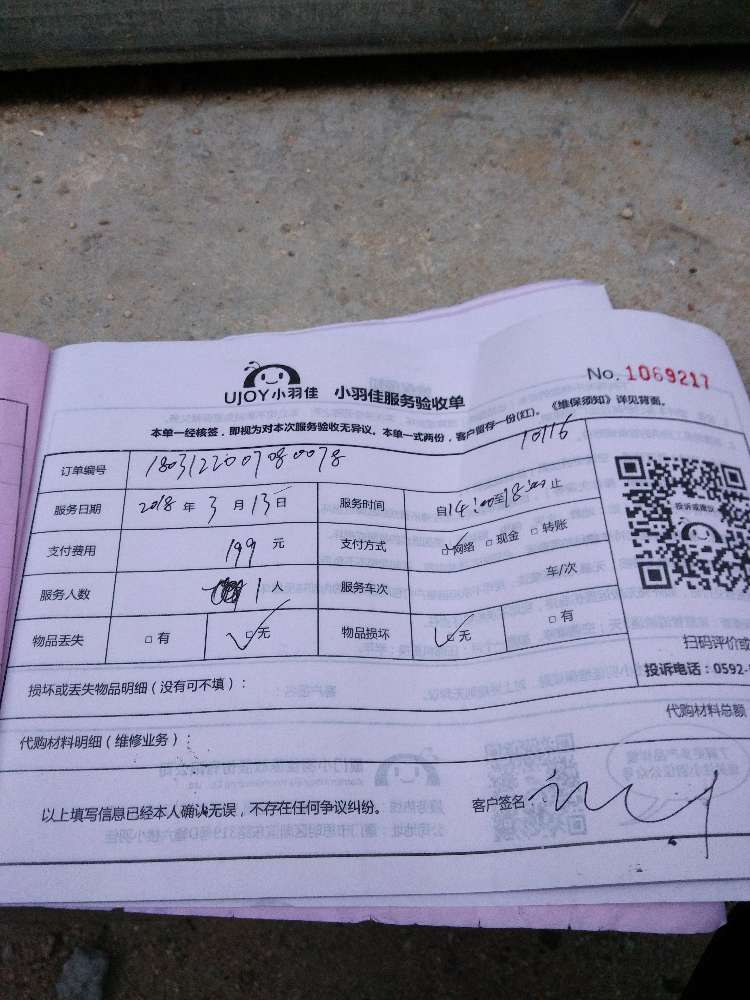 UJOY小羽佳 小羽佳服务验收单
No. 1069217
本单一经核签，即视为对本次服务验收无异议。本单一式两份，客户留存一份(红)。《维保须知》详见背面。
10116
订单编号 1803122007080078
服务日期 2018 年 3 月 13 日 服务时间 自14:00至18:00止
投诉或建议
支付费用 199 元 支付方式 ☑网络 □现金 □转账
服务人数 1人 服务车次 车/次
物品丢失 □有 ☑无 物品损坏 ☑无 □有
扫码评价或
投诉电话：0592-
损坏或丢失物品明细（没有可不填）：
代购材料总额
代购材料明细（维修业务）：
以上填写信息已经本人确认无误，不存在任何争议纠纷。 客户签名：